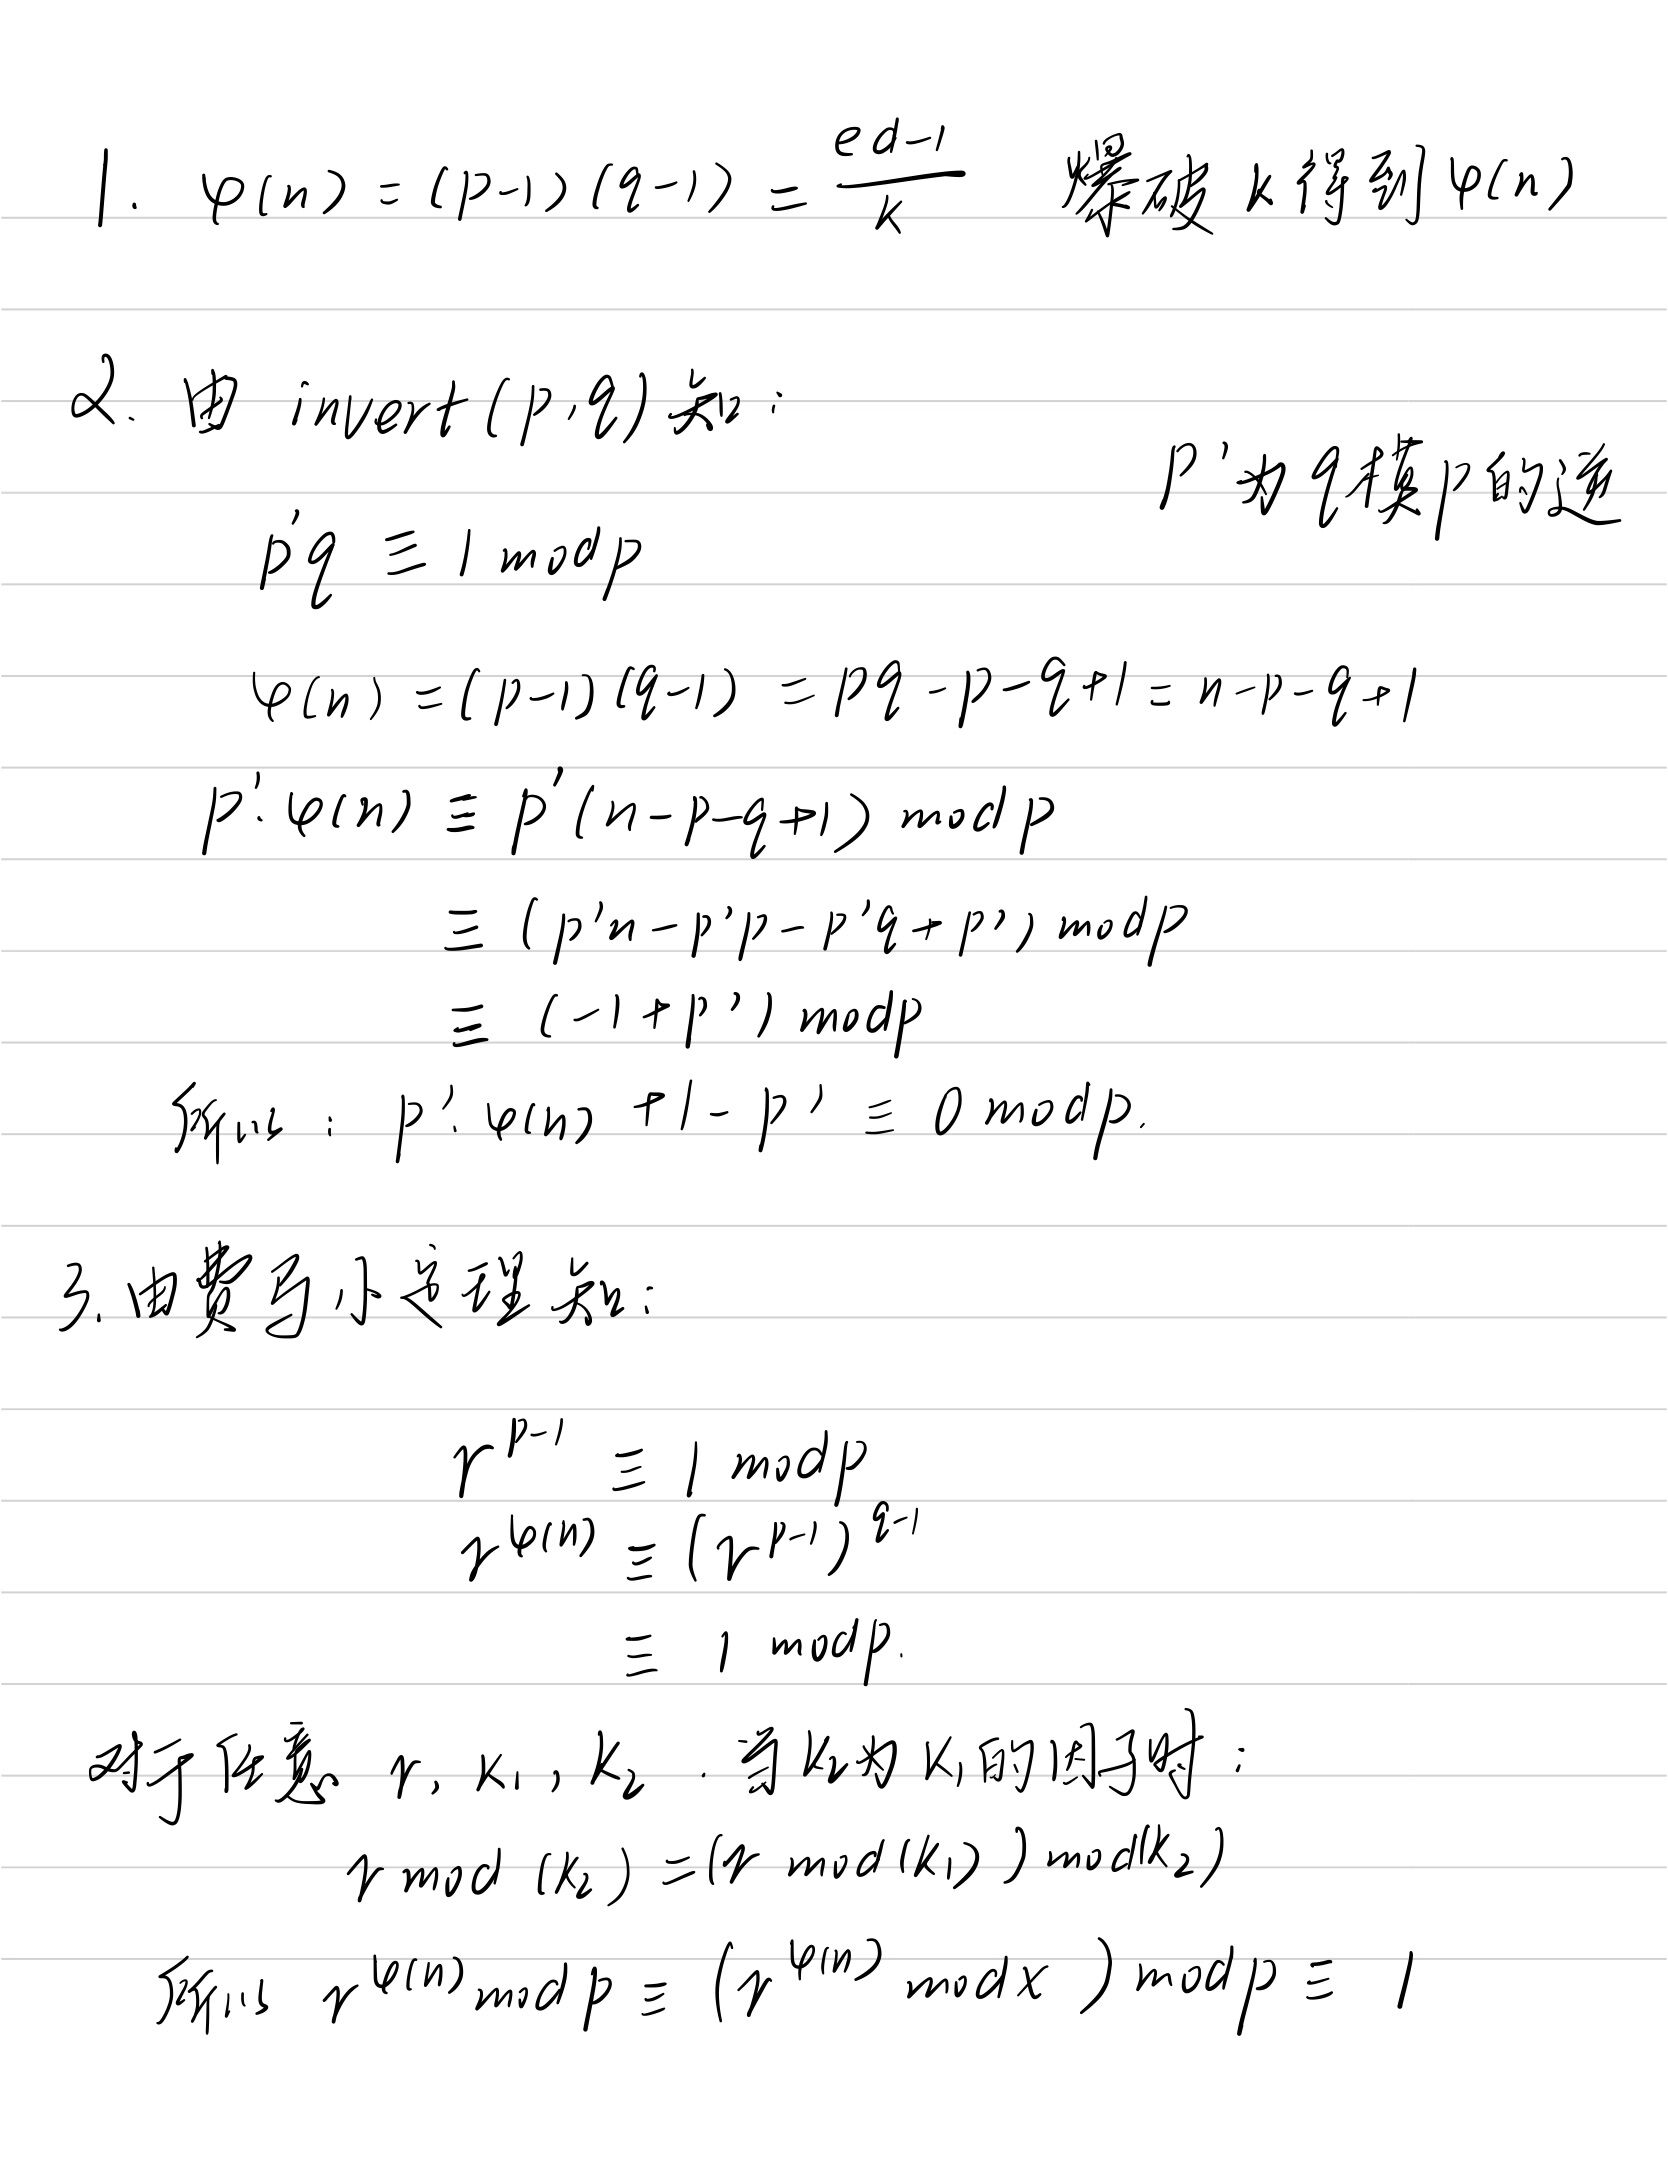 1. φ(n) = (p-1)(q-1) = (ed-1)/k 爆破 k 得到 φ(n)
2. 由 invert(p,q) 知:
p' 为 q 模 p 的逆
p'q ≡ 1 mod p
φ(n) = (p-1)(q-1) = pq-p-q+1 = n-p-q+1
p'·φ(n) ≡ p'(n-p-q+1) mod p
≡ (p'n-p'p-p'q+p') mod p
≡ (-1+p') mod p
所以: p'·φ(n)+1-p' ≡ 0 mod p.
3. 由费马小定理知:
r^(p-1) ≡ 1 mod p
r^φ(n) ≡ (r^(p-1))^(q-1)
≡ 1 mod p.
对于任意 r, k₁, k₂. 当 k₂ 为 k₁ 的因子时:
r mod (k₂) = (r mod (k₁)) mod (k₂)
所以 r^φ(n) mod p ≡ (r^φ(n) mod x) mod p ≡ 1